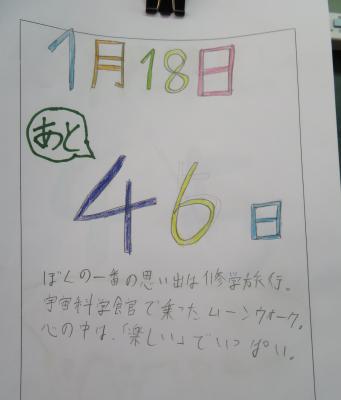 1月18日
あと
46日
ぼくの一番の思い出は修学旅行。
宇宙科学館で乗ったムーンウォーク。
心の中は、「楽しい」でいっぱい。